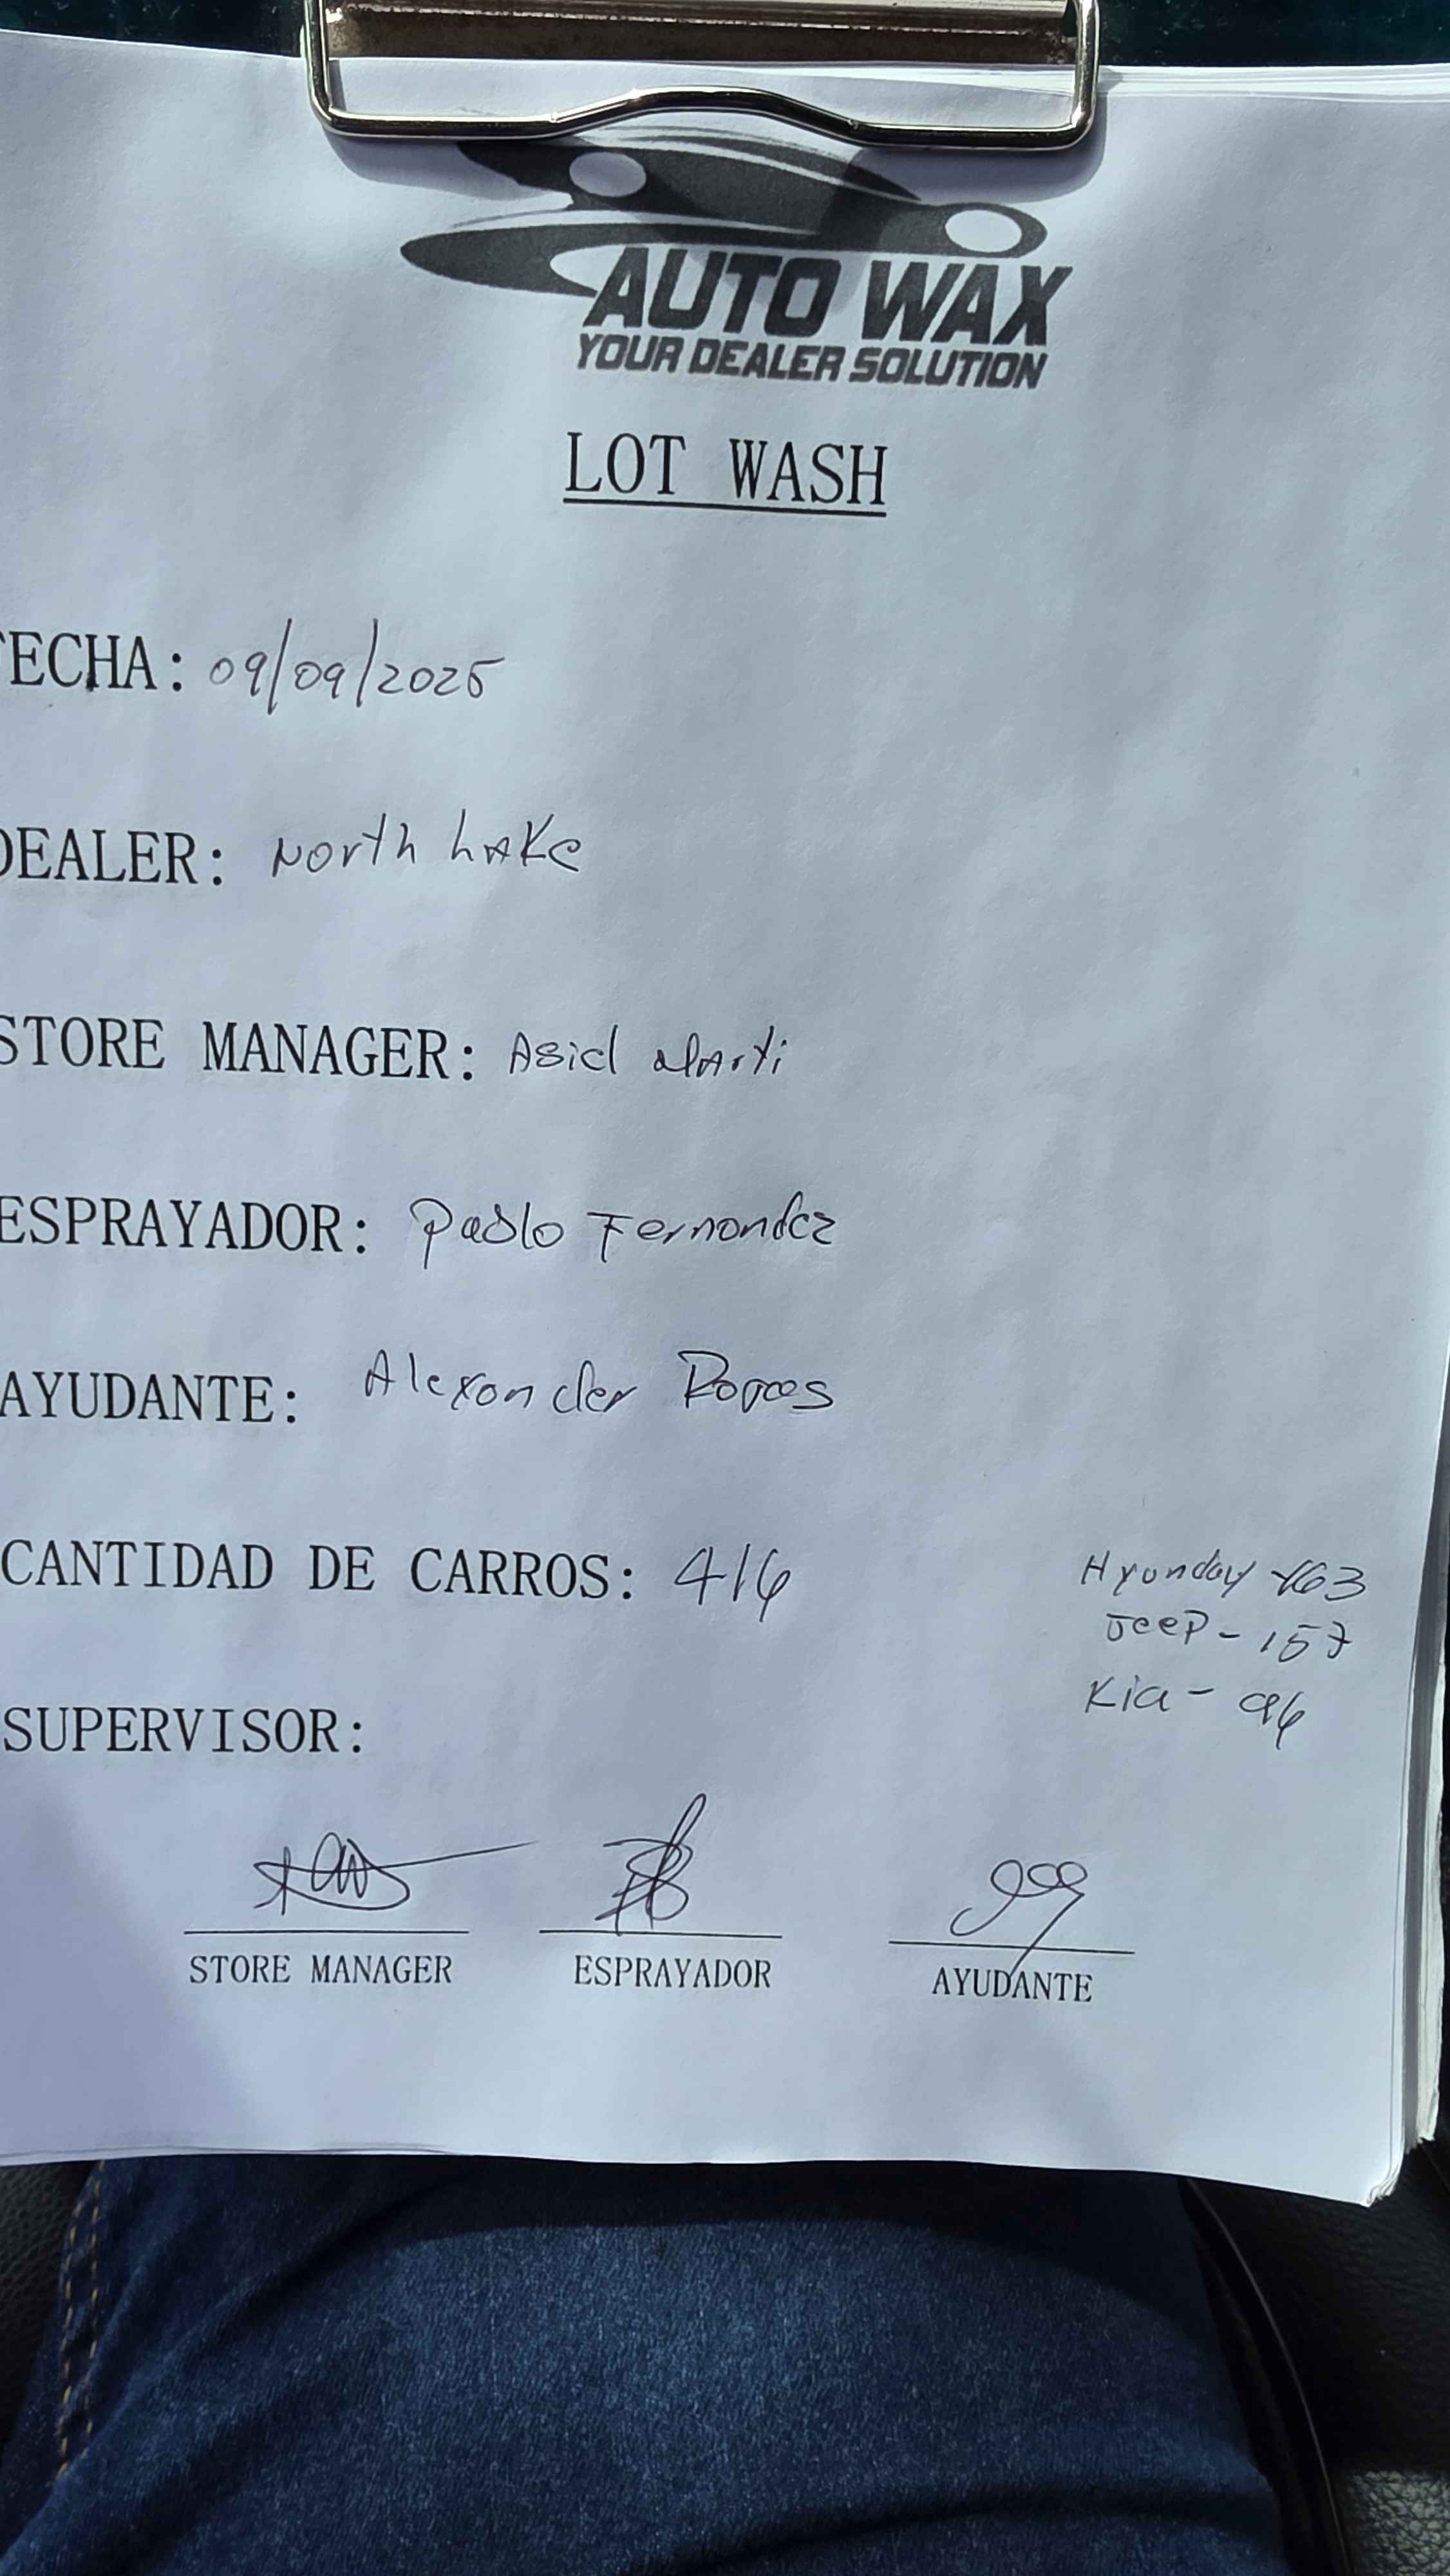 AUTO WAX
YOUR DEALER SOLUTION
LOT WASH
FECHA: 09/09/2025
DEALER: North Lake
STORE MANAGER: Asiel Marti
ESPRAYADOR: Pablo Fernandez
AYUDANTE: Alexander
CANTIDAD DE CARROS: 416
Hyunday -163
Jeep - 157
Kia - 96
SUPERVISOR:
STORE MANAGER ESPRAYADOR AYUDANTE